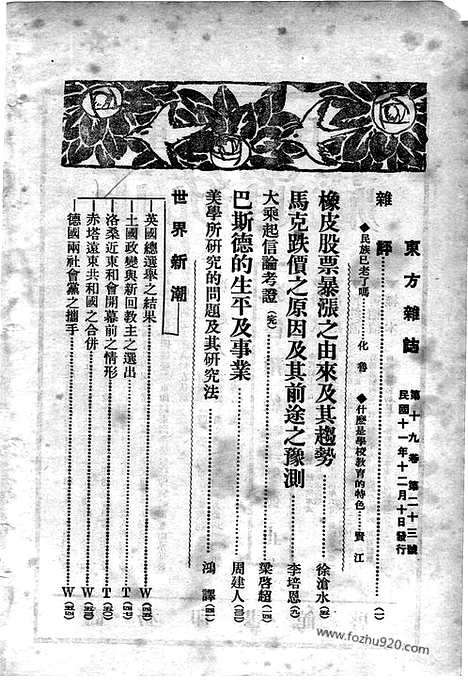 東方雜誌 第十九卷 第二十三號
民國十一年十二月十日發行
雜評……(一)
◆民族已老了嗎……化魯 ◆什麼是學校教育的特色……賢江
橡皮股票暴漲之由來及其趨勢……徐滄水
馬克跌價之原因及其前途之豫測……李培恩(九)
大乘起信論考證(完)……梁啓超
巴斯德的生平及事業……周建人
美學所研究的問題及其研究法……鴻譯
世界新潮
英國總選舉之結果……W
土國政變與新回教主之選出……T
洛桑近東和會開幕前之情形……T
赤塔遠東共和國之合併……W
德國兩社會黨之攜手……W
www.fozhu920.com